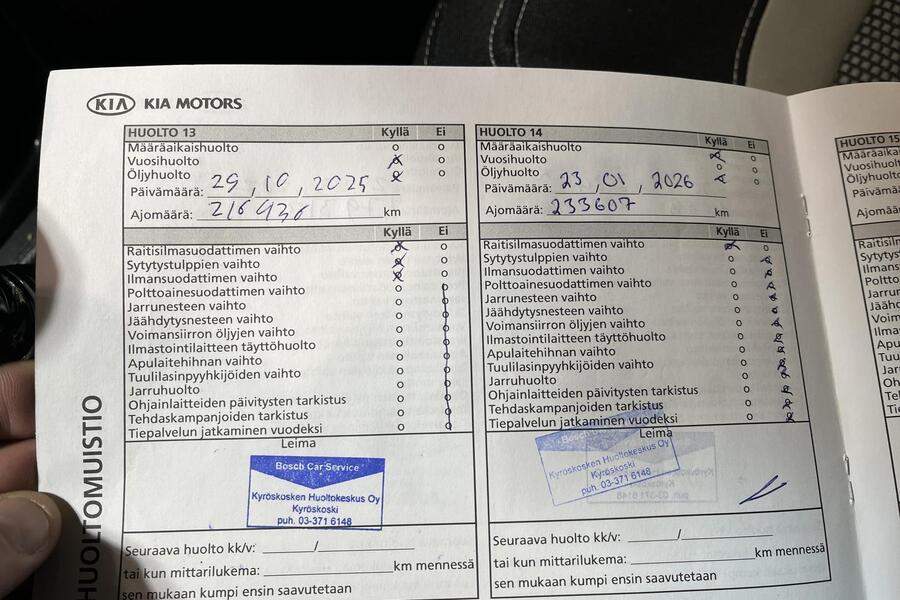 KIA KIA MOTORS
HUOLTO 13 Kyllä Ei
Määräaikaishuolto
Vuosihuolto
Öljyhuolto
Päivämäärä: 29, 10, 2025
Ajomäärä: 216936 km
Kyllä Ei
Raitisilmasuodattimen vaihto
Sytytystulppien vaihto
Ilmansuodattimen vaihto
Polttoainesuodattimen vaihto
Jarrunesteen vaihto
Jäähdytysnesteen vaihto
Voimansiirron öljyjen vaihto
Ilmastointilaitteen täyttöhuolto
Apulaitehihnan vaihto
Tuulilasinpyyhkijöiden vaihto
Jarruhuolto
Ohjainlaitteiden päivitysten tarkistus
Tehdaskampanjoiden tarkistus
Tiepalvelun jatkaminen vuodeksi
Leima
Bosch Car Service
Kyröskosken Huoltokeskus Oy
Kyröskoski
puh. 03-371 6148
Seuraava huolto kk/v: /
tai kun mittarilukema: km mennessä
sen mukaan kumpi ensin saavutetaan
HUOLTO 14 Kyllä Ei
Määräaikaishuolto
Vuosihuolto
Öljyhuolto
Päivämäärä: 23, 01, 2026
Ajomäärä: 233607 km
Kyllä Ei
Raitisilmasuodattimen vaihto
Sytytystulppien vaihto
Ilmansuodattimen vaihto
Polttoainesuodattimen vaihto
Jarrunesteen vaihto
Jäähdytysnesteen vaihto
Voimansiirron öljyjen vaihto
Ilmastointilaitteen täyttöhuolto
Apulaitehihnan vaihto
Tuulilasinpyyhkijöiden vaihto
Jarruhuolto
Ohjainlaitteiden päivitysten tarkistus
Tehdaskampanjoiden tarkistus
Tiepalvelun jatkaminen vuodeksi
Leima
Bosch
Kyröskosken Huoltokeskus Oy
Kyröskoski
puh. 03-371 6148
Seuraava huolto kk/v: /
tai kun mittarilukema: km mennessä
sen mukaan kumpi ensin saavutetaan
HUOLTO 15
Määräaika
Vuosihuol
Öljyhuolto
Päivämää
Ajomäär
HUOLTOMUISTIO